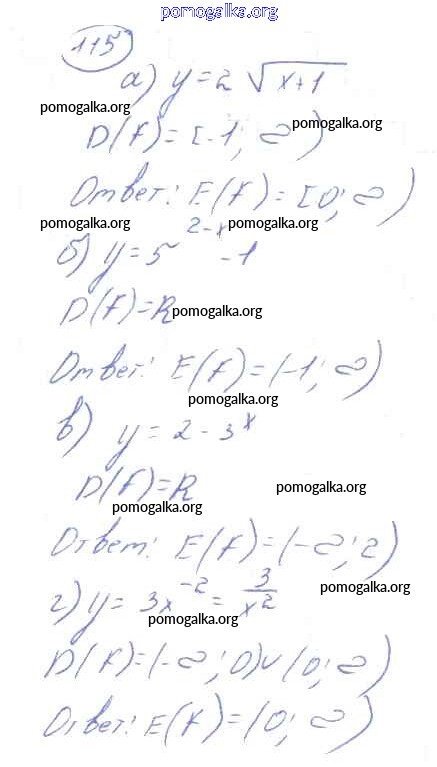 pomogalka.org
115
а) y = 2 √x+1
pomogalka.org
D(f) = [-1; ∞)
pomogalka.org
Ответ: E(f) = [0; ∞)
pomogalka.org
pomogalka.org
б) y = 5^(2-x) - 1
D(f) = R
pomogalka.org
Ответ: E(f) = (-1; ∞)
pomogalka.org
в) y = 2 - 3^x
D(f) = R
pomogalka.org
pomogalka.org
Ответ: E(f) = (-∞; 2)
г) y = 3x^-2 = 3/x^2
pomogalka.org
pomogalka.org
D(f) = (-∞; 0) ∪ (0; ∞)
Ответ: E(f) = (0; ∞)